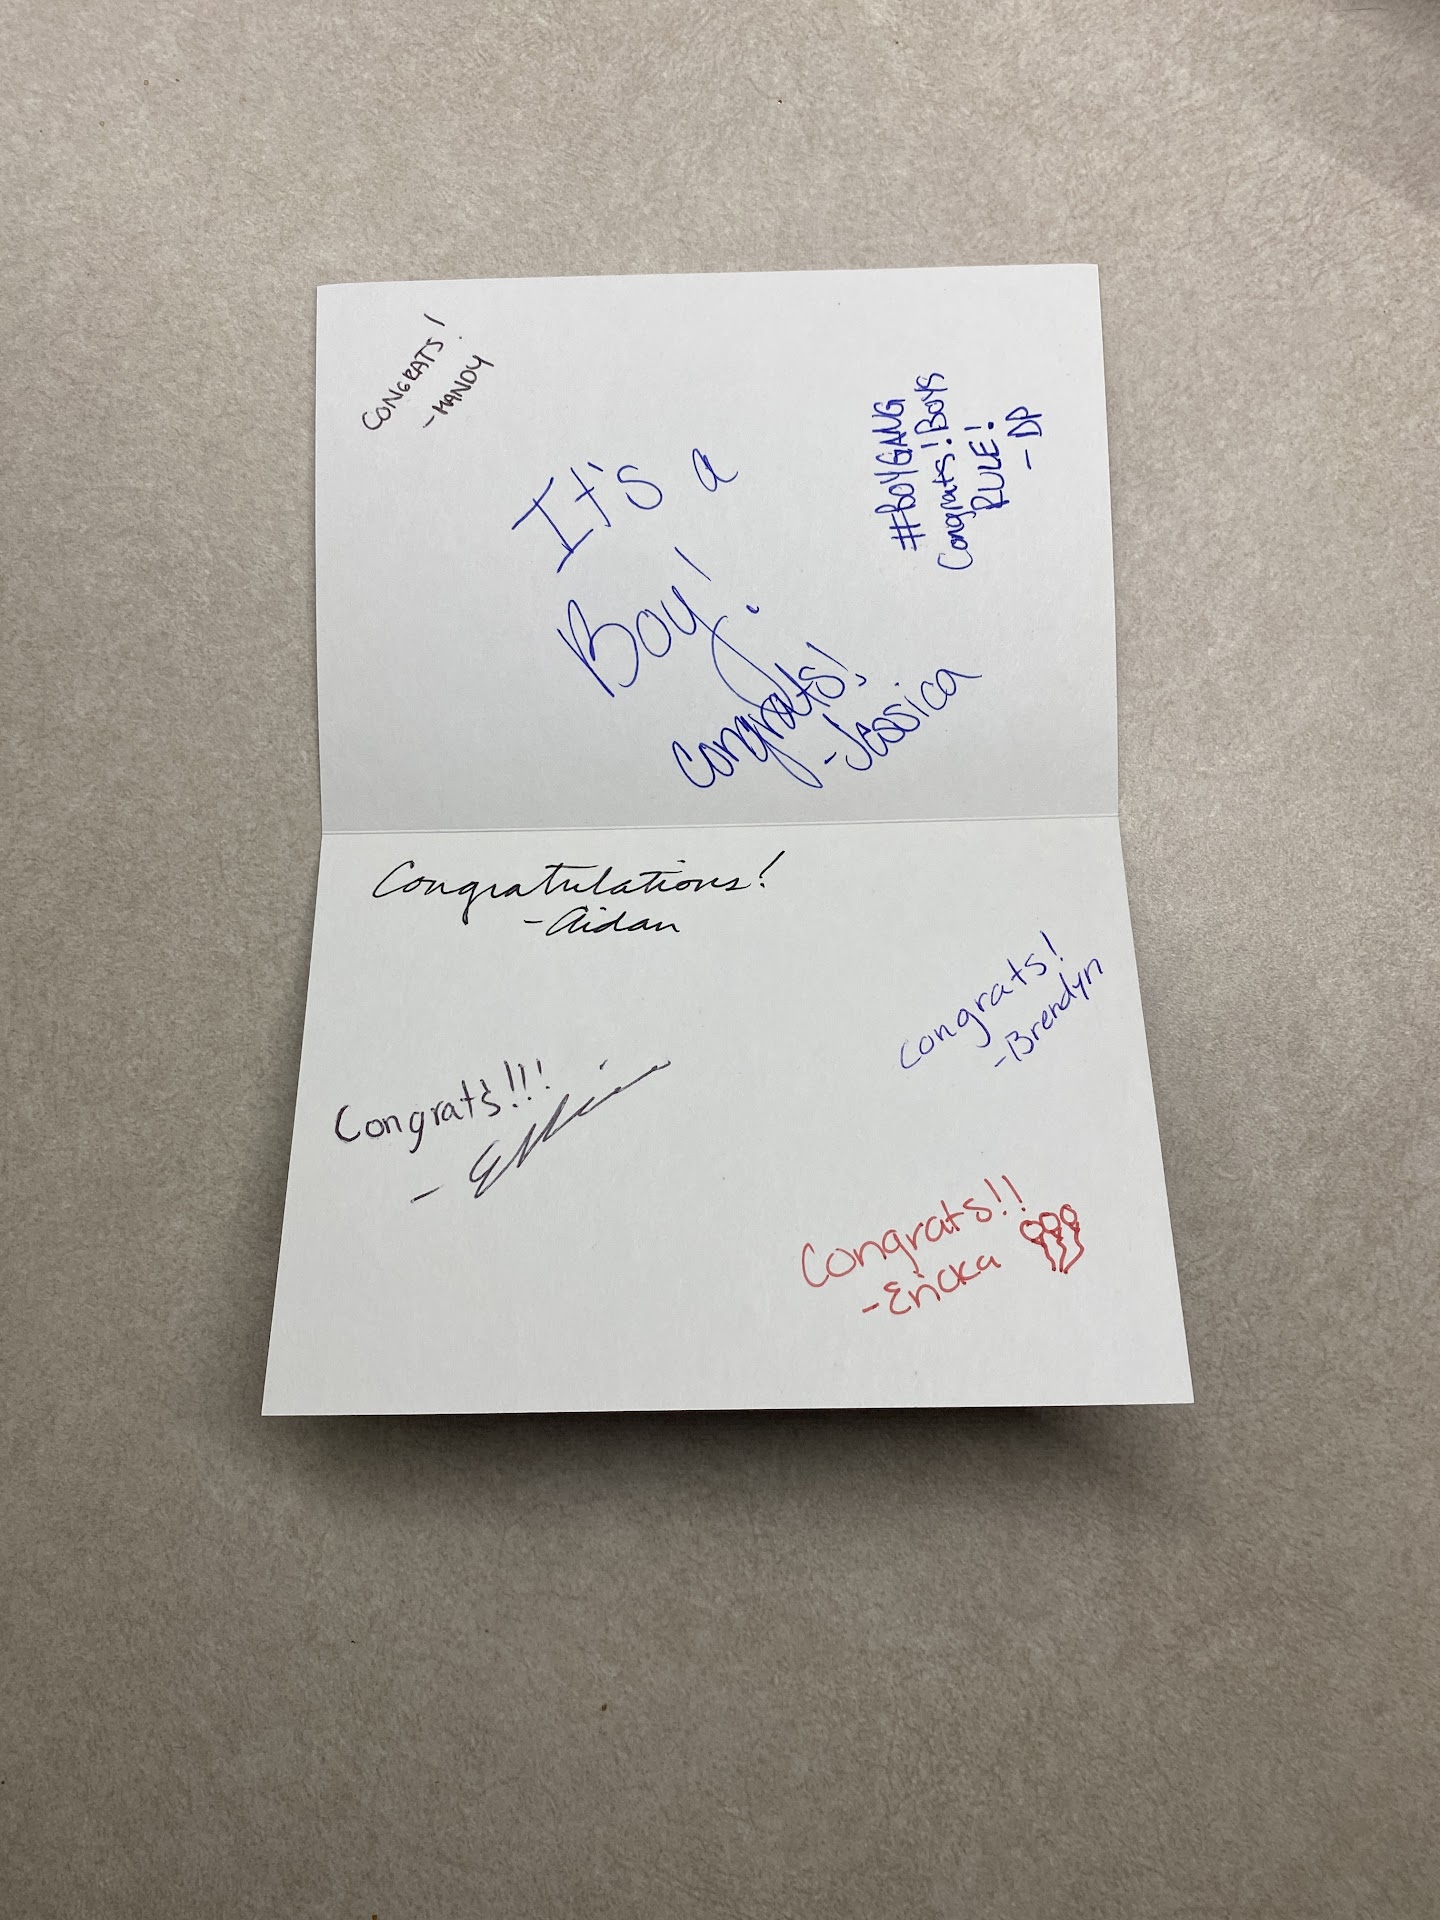 CONGRATS!
-MANDY
#BOYGANG
Congrats! Boys
RULE!
- DP
It's a
Boy!
Congrats!
-Jessica
Congratulations!
-Aidan
congrats!
-Brendyn
Congrats!!!
Congrats!!
-Ericka